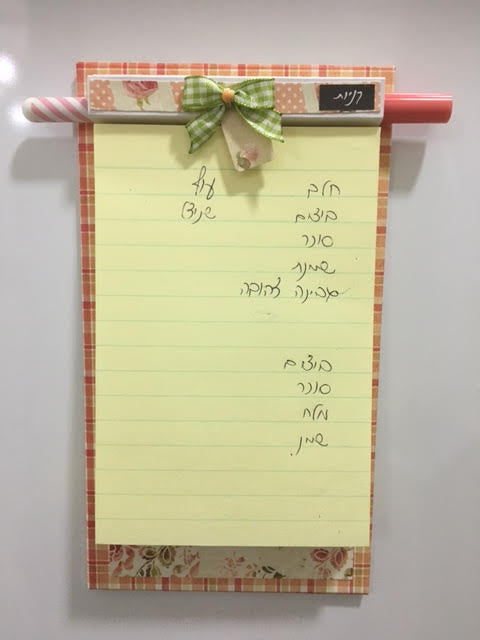 קניות
חלב
ביצים
סוכר
שמנת
גבינה צהובה
עוף
שניצל
ביצים
סוכר
מלח
שמן.